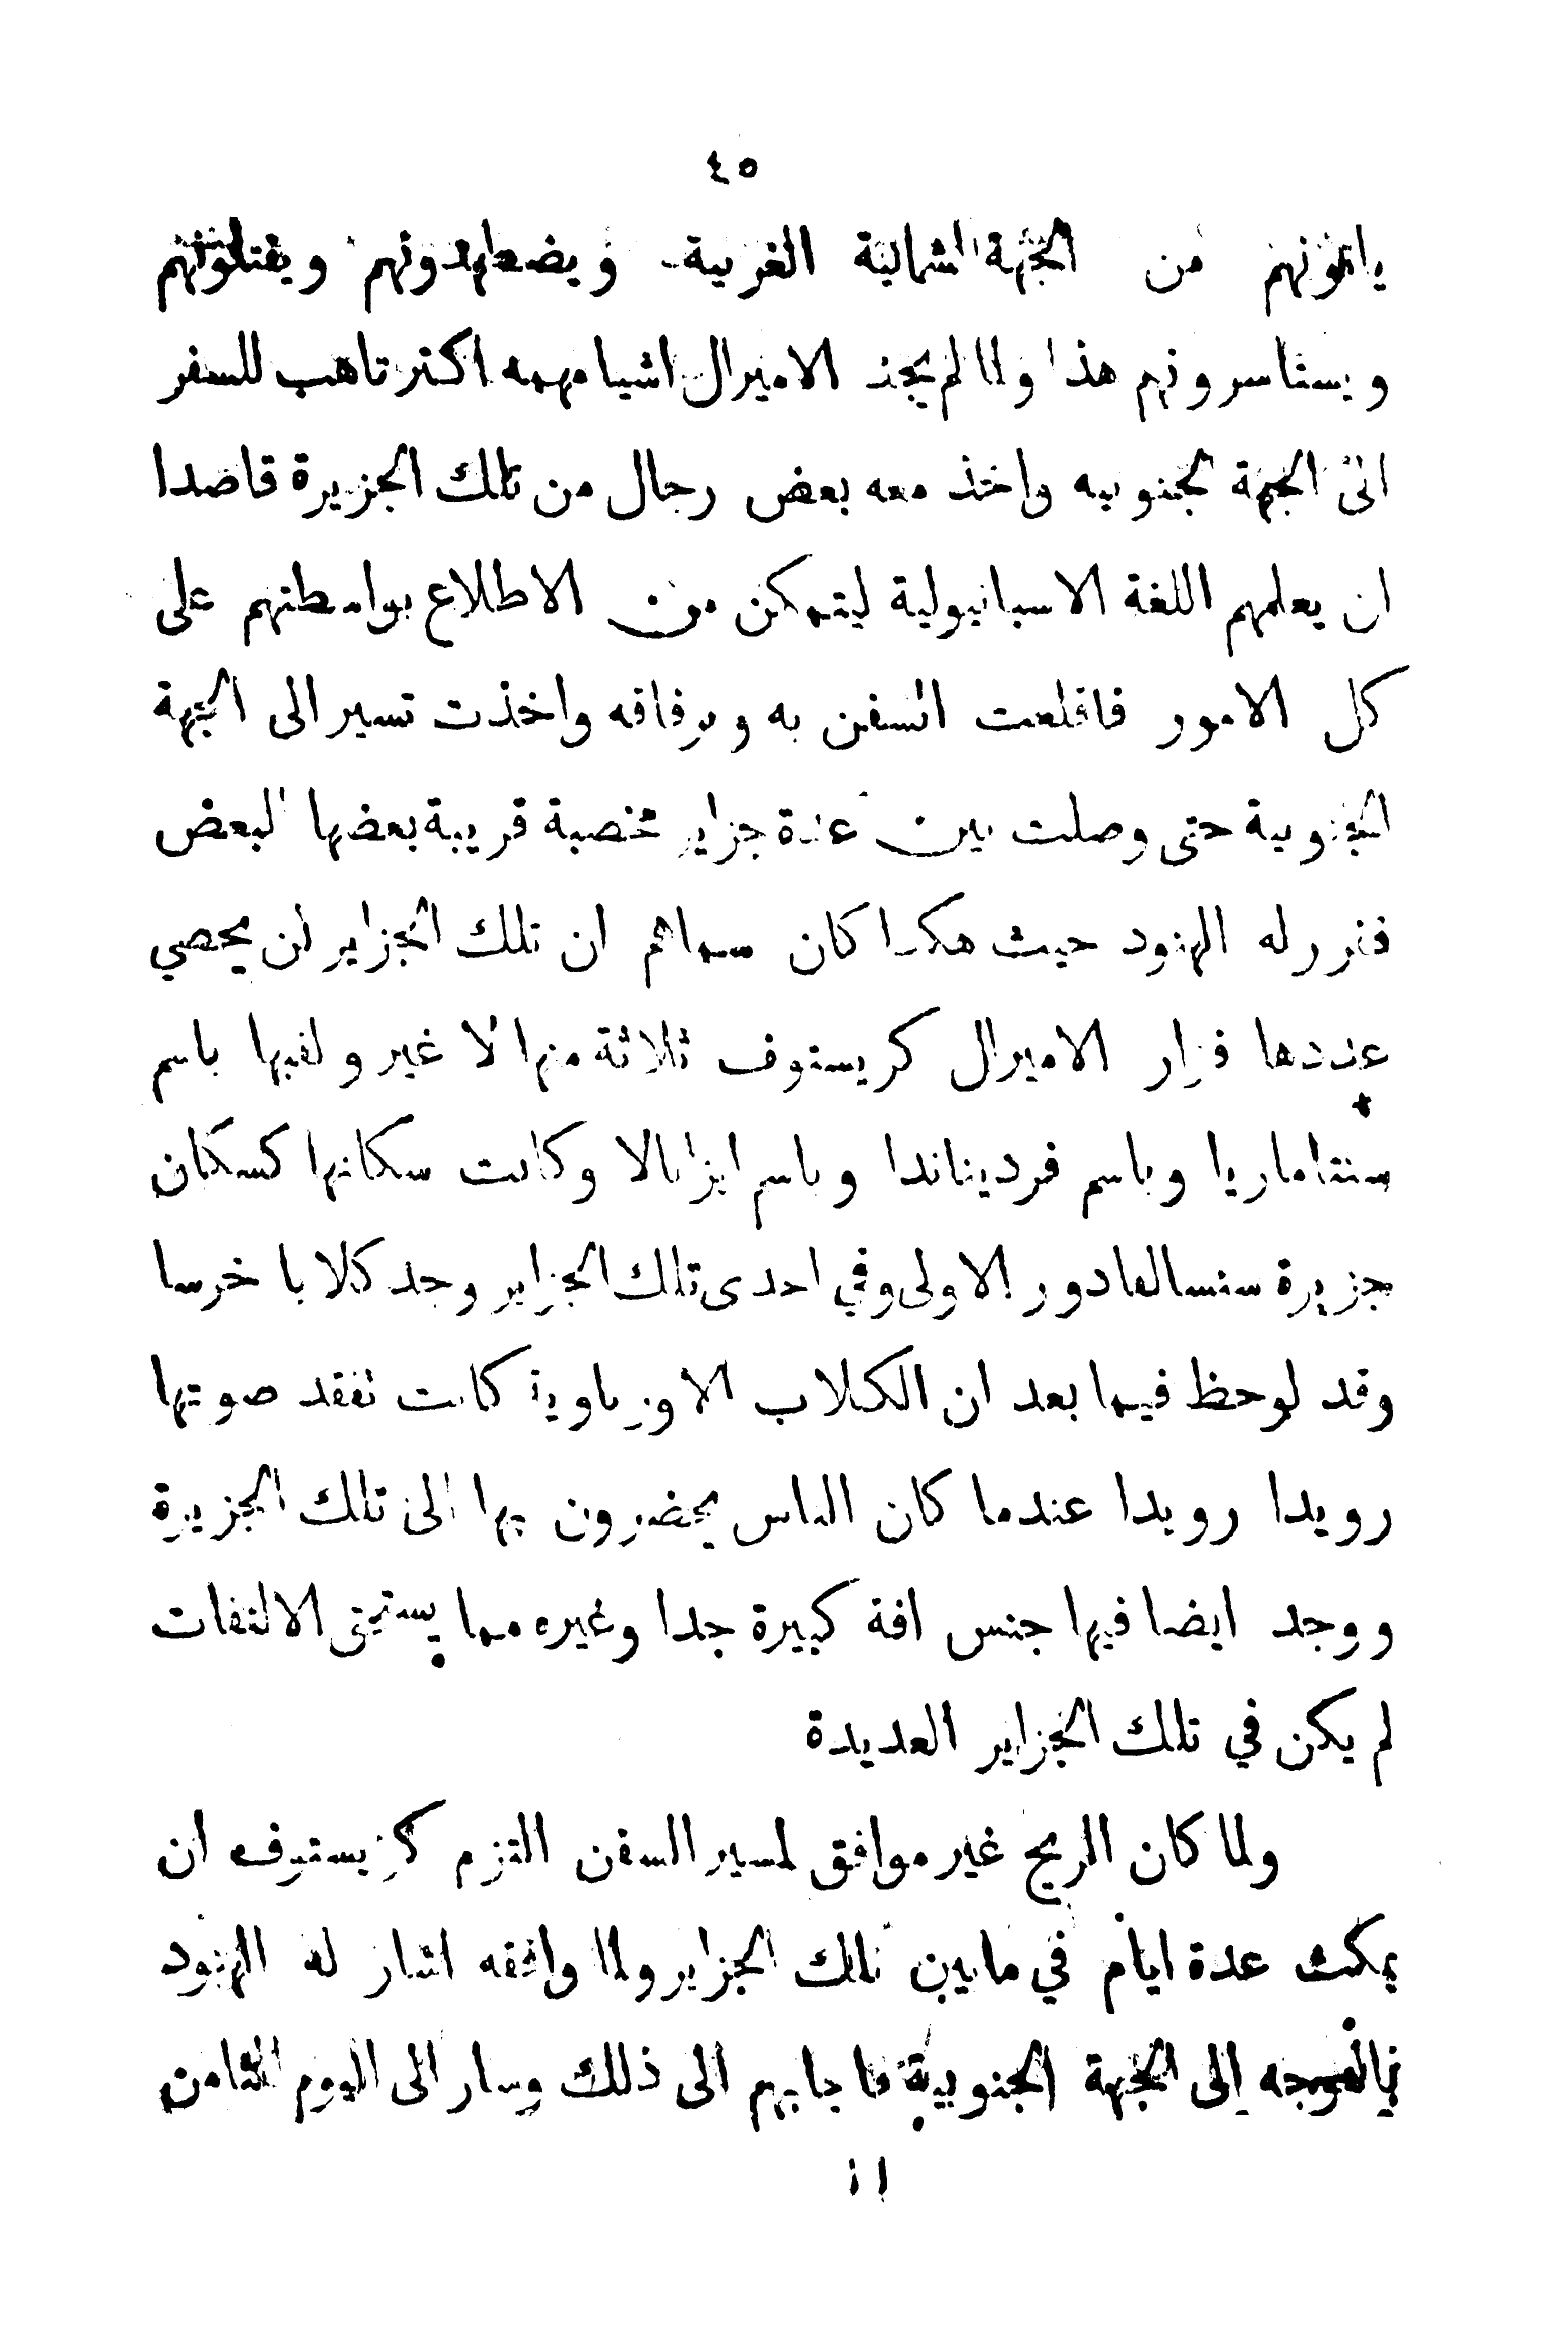 ٤٥
ياتونهم من الجهة الشمالية الغربية ويضطهدونهم ويقتلونهم
ويستاسرونهم هذا ولما لم يجد الاميرال اشيا مهمه اكثر تاهب للسفر
الى الجهة الجنوبيه واخذ معه بعض رجال من تلك الجزيرة قاصدا
ان يعلمهم اللغة الاسبانيولية ليتمكن من الاطلاع بواسطتهم على
كل الامور فاقلعت السفن به وبرفاقه واخذت تسير الى الجهة
الجنوبية حتى وصلت بين عدة جزاير مخصبة قريبة بعضها لبعض
فقرر له الهنود حيث هكذا كان سماهم ان تلك الجزاير لن يحصي
عددها فزار الاميرال كريستوف ثلاثة منها لا غير ولقبها باسم
سنتاماريا وباسم فرديناندا وباسم ايزابالا وكانت سكانها كسكان
جزيرة سنسالفادور الاولى وفي احدى تلك الجزاير وجد كلابا خرسا
وقد لوحظ فيما بعد ان الكلاب الاورباوية كانت تفقد صوتها
رويدا رويدا عندما كان الناس يحضرون بها الى تلك الجزيرة
ووجد ايضا فيها جنس افة كبيرة جدا وغيره مما يستحق الالتفات
لم يكن في تلك الجزاير العديدة
ولما كان الريح غير موافق لمسير السفن التزم كريستوف ان
يمكث عدة ايام في ما بين تلك الجزاير ولما وافقه اشار له الهنود
بالتوجه الى الجهة الجنوبية فاجابهم الى ذلك وسار الى اليوم الثامن